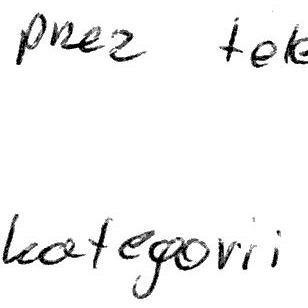 przez tek
kategorii